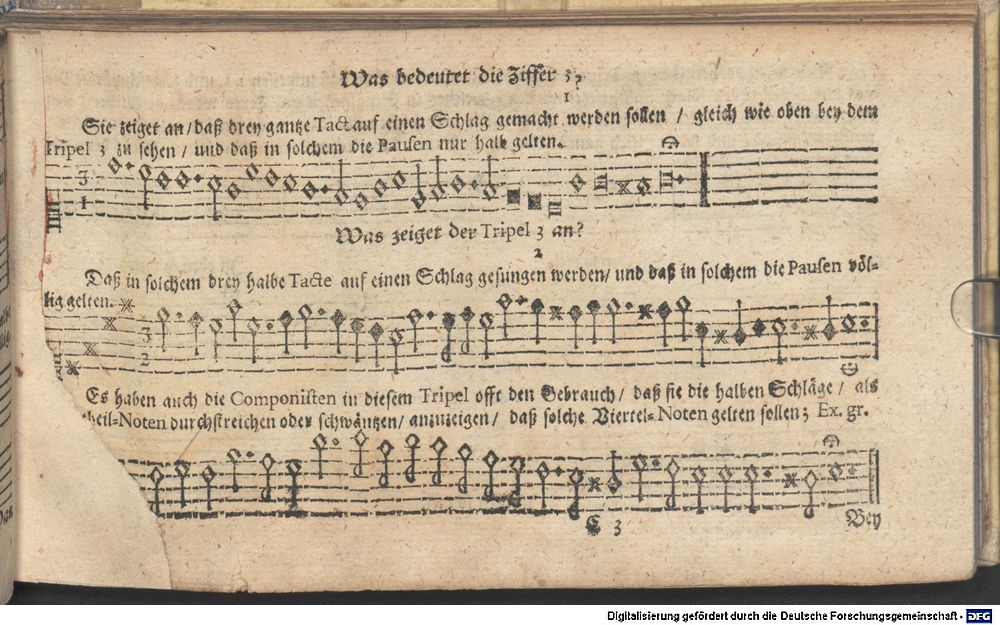 Was bedeutet die Ziffer 3?
1
Sie zeiget an/daß drey gantze Tact auf einen Schlag gemacht werden sollen / gleich wie oben bey dem
Tripel 3 zu sehen / und daß in solchem die Pausen nur halb gelten.
3
1
Was zeiget der Tripel 3 an?
2
Daß in solchem drey halbe Tacte auf einen Schlag gesungen werden/ und daß in solchem die Pausen völ-
lig gelten.
3
2
Es haben auch die Componisten in diesem Tripel offt den Gebrauch/ daß sie die halben Schläge / als
theil-Noten durchstreichen oder schwäntzen/ anzuzeigen/ daß solche Viertel-Noten gelten sollen; Ex. gr.
E 3
Bey
Digitalisierung gefördert durch die Deutsche Forschungsgemeinschaft - DFG